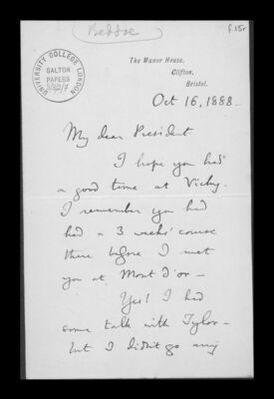 Beddoe
f.15r
UNIVERSITY COLLEGE LONDON
GALTON
PAPERS
The Manor House,
Clifton,
Bristol.
Oct 16, 1888
My dear President
I hope you had
a good time at Vichy.
I remember you had
had a 3 weeks' course
there before I met
you at Mont D'or –
Yes! I had
some talk with Tylor –
but I didn't go any